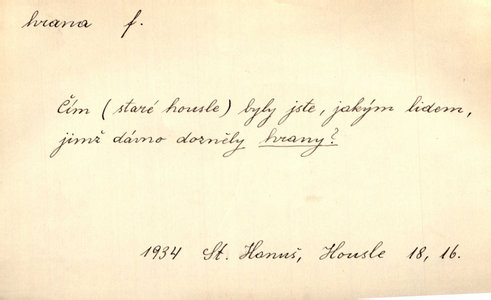 hrana f.
Čím (staré housle) byly jste, jakým lidem,
jimž dávno dozněly hrany?
1934 St. Hanuš, Housle 18, 16.